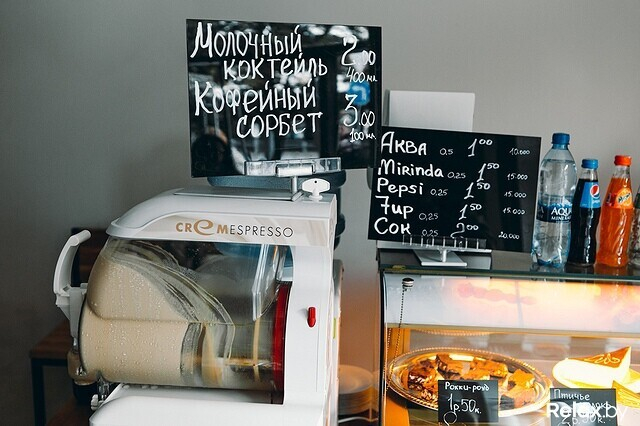 Молочный 2.00
коктейль 400 мл
Кофейный 3.00
сорбет 100 мл
Аква 0,5 1 00 10.000
Mirinda 0,25 1 50 15.000
Pepsi 0,25 1 50 15.000
7up 0,25 1 50 15.000
Сок 0,25 2 00 20.000
CREMESPRESSO
AQUA
MINERALE
Рокки-роуд
1р50к.
Птичье
Relax.by